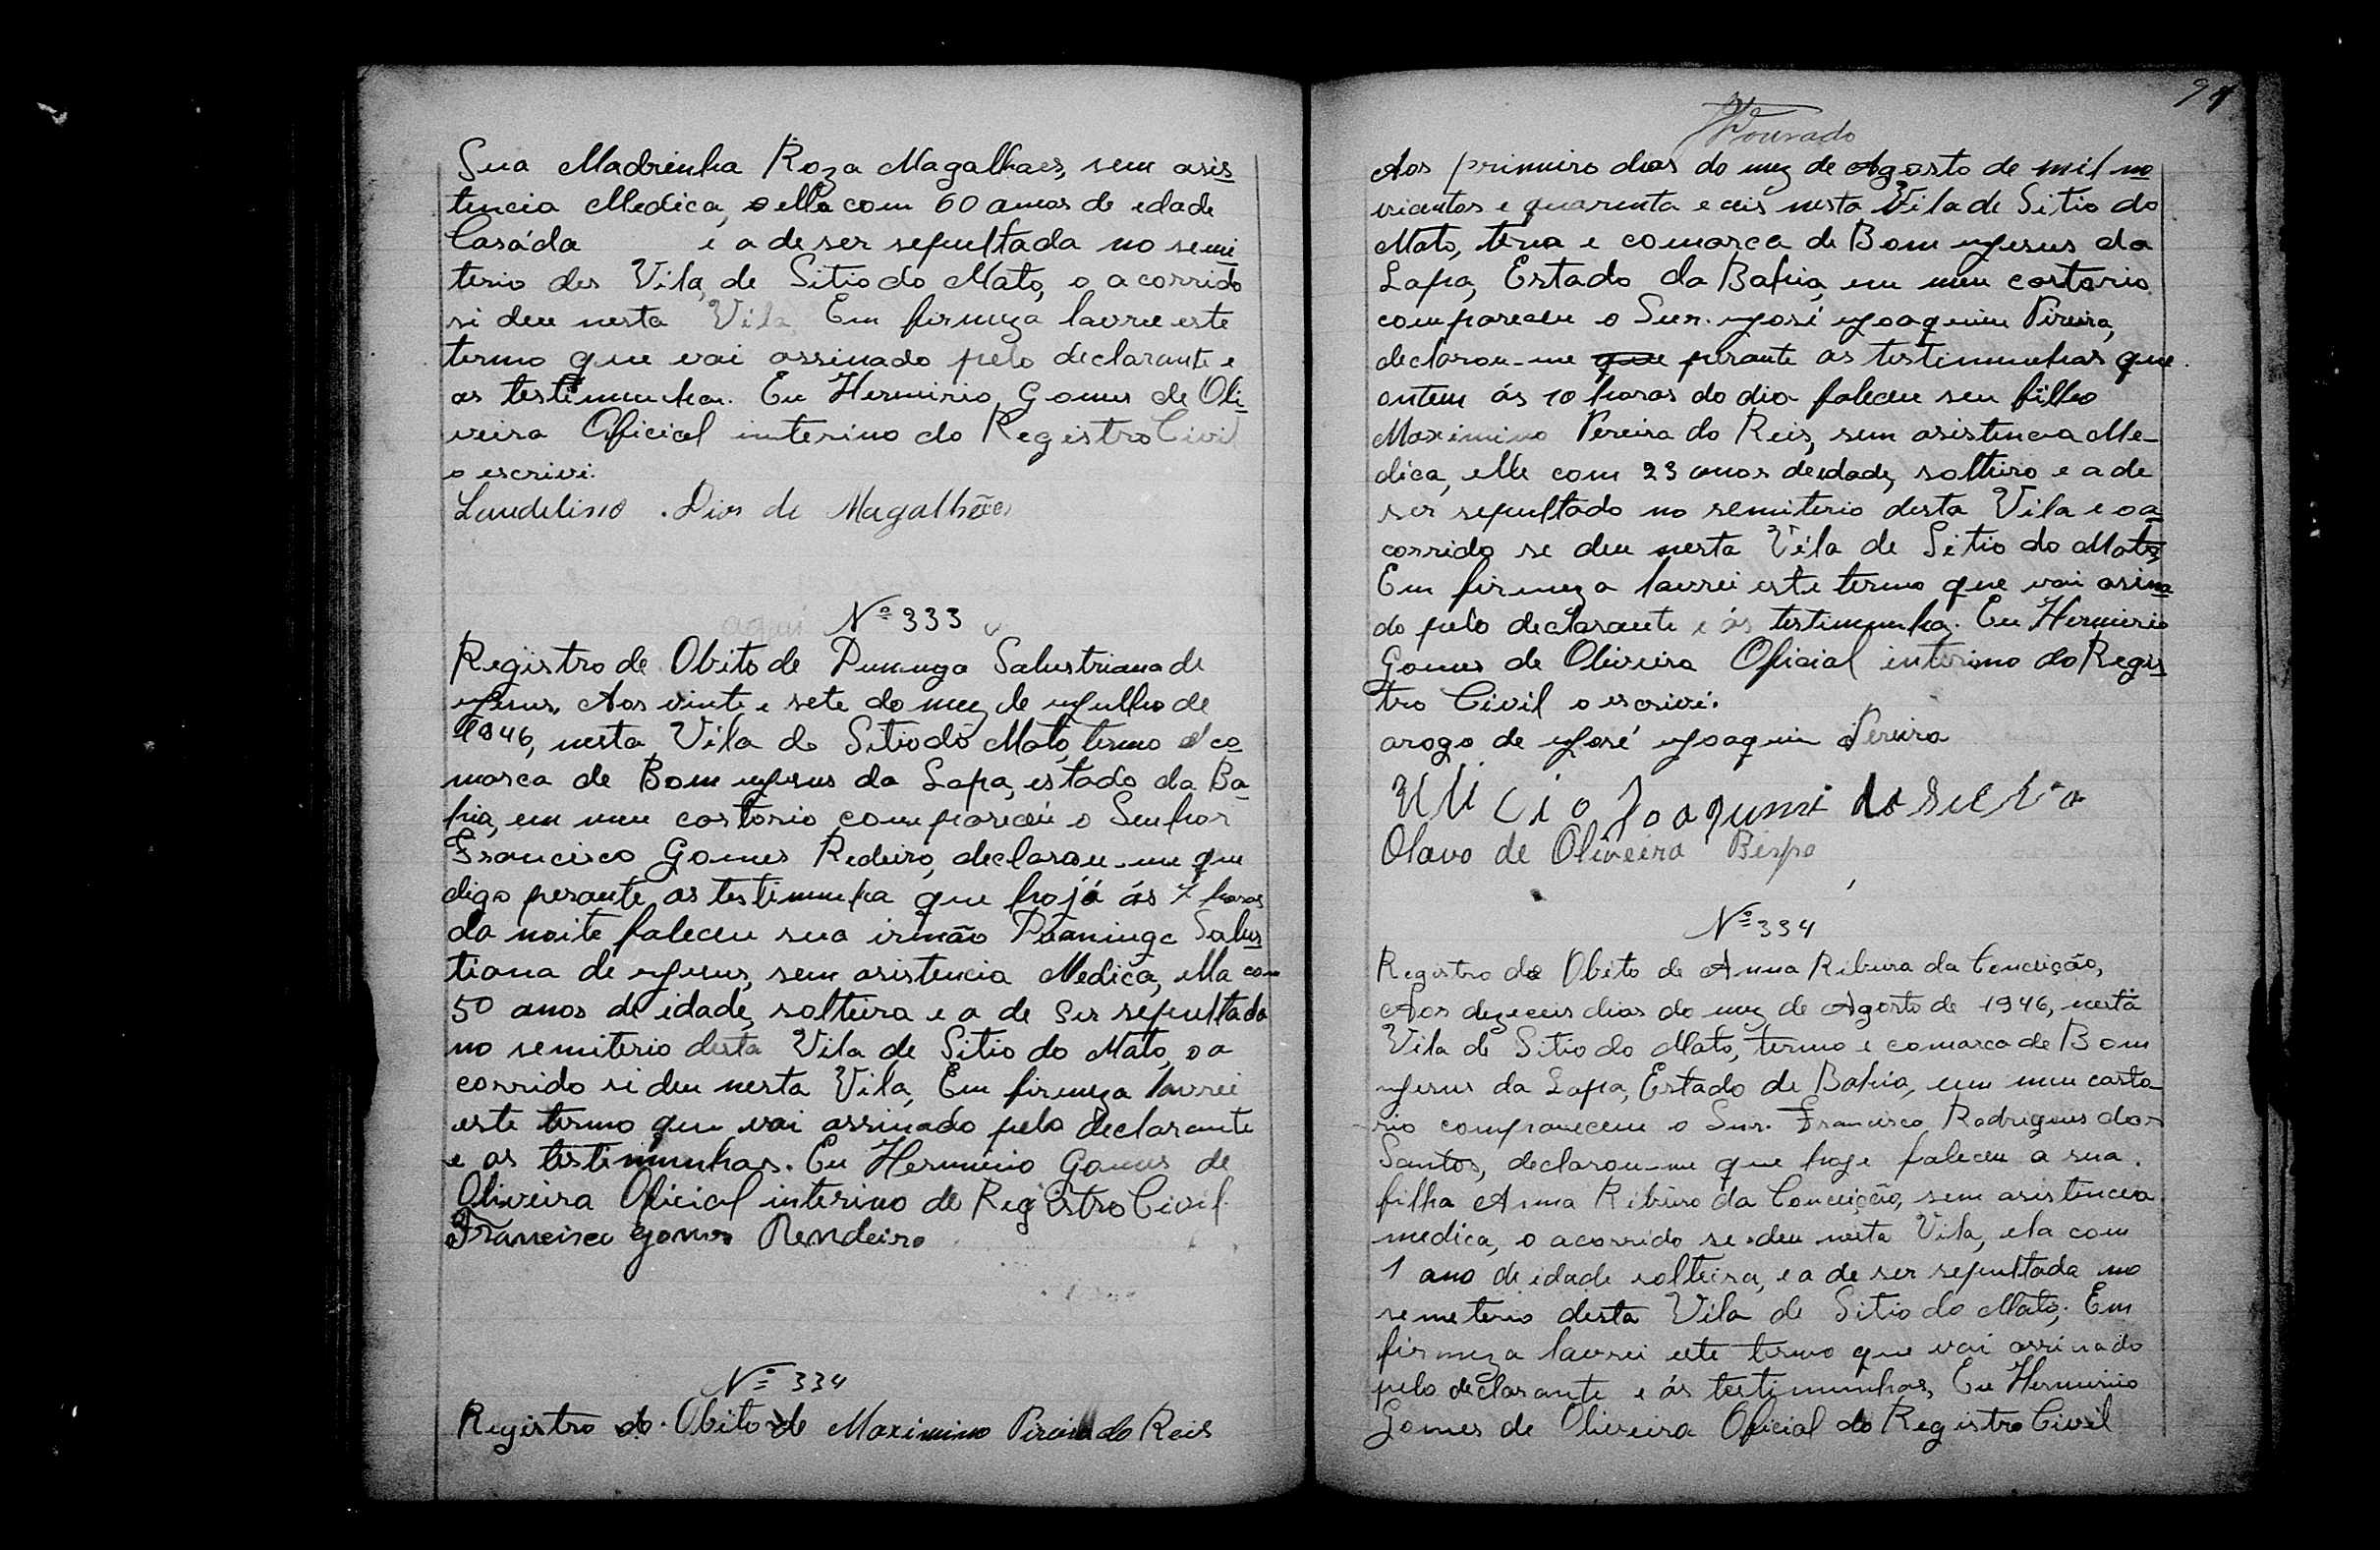 Sua Madrinha Roza Magalhaes, sem asis
tencia Medica, o ella com 60 anos de edade
Casáda e a de ser sepultada no semi
terio des Vila, de Sitio do Mato, o acorrido
si deu nesta Vila Em firmeza lavrei este
termo que vai assinado pelo declarante e
as testimunha. Eu Herminio Gomes de Oli
veira Oficial interino do Registro Civil
o escrivi.
Laudelino Dias de Magalhães
Nº 333
Registro de Obito de Salustriana de
Jesus, Aos vinte e sete do mez de Julho de
1946, nesta Vila do Sitio do Mato, termo e co
marca de Bom Jesus da Lapa, estado da Ba
hia, em meu cartorio compareceu o Senhor
Francisco Gomes Redeiro, declarou-me que
digo perante as testimunha que hojá ás 7 horas
da noite faleceu sua irmão Salus
tiana de Jesus, sem asistencia Medica, ella com
50 anos de idade, solteira e a de ser sepultada
no semiterio desta Vila de Sitio do Mato, o a
corrido si deu nesta Vila, Em firmeza lavrei
este termo que vai assinado pelo declarante
e as testimunhas. Eu Herminio Gomes de
Oliveira Oficial interino do Registro Civil
Francisco Gomes Rendeiro
Nº 334
Registro do Obito de Maximino Pireira do Reis
Dourado
Aos primeiro dias do mez de Agosto de mil no
vicentos e quarenta e ceis nesta Vila de Sitio do
Mato, e comarca de Bom Jesus da
Lapa, Estado da Bahia, em meu cartorio
compareceu o Snr. José Joaquim Pireira,
declarou-me que perante as testimunhas que
ontem ás 10 horas do dia faleceu seu filho
Maximino Pereira do Reis, sem asistencia Me-
dica, elle com 23 anos de idade, solteiro e a de
ser sepultado no semiterio desta Vila e o a
corrido se deu nesta Vila de Sitio do Mato,
Em firmeza lavrei este termo que vai asina
do pelo declarante e ás testimunha. Eu Herminio
Gomes de Oliveira Oficial interino do Regis
tro Civil o escrivi.
arogo de José Joaquim Pereira
Joaquim da
Olavo de Oliveira Bispo
Nº 334
Registro do Obito de Anna Ribeira da Conceição,
Aos dezeceis dias do mez de Agosto de 1946, nesta
Vila de Sitio do Mato, termo e comarca de Bom
Jesus da Lapa, Estado de Bahia, em meu carto-
rio compareceu o Snr. Francisco Rodrigues dos
Santos, declarou-me que hoje faleceu a sua
filha Anna Ribeiro da Conceição, sem asistencia
medica, o acorrido se deu nesta Vila, ela com
1 ano de idade solteira, e a de ser sepultada no
semeterio desta Vila de Sitio do Mato, Em
firmeza lavrei este termo que vai assinado
pelo declarante e ás testimunhas, Eu Herminio
Gomes de Oliveira Oficial do Registro Civil